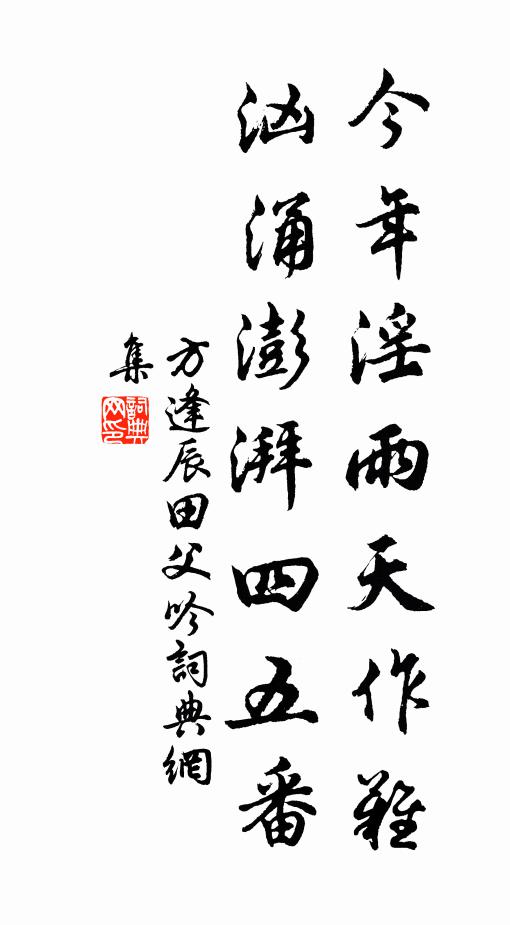 今年淫雨天作難
汹涌澎湃四五番
方逢辰田父吟詞典網
集
詞典
网印